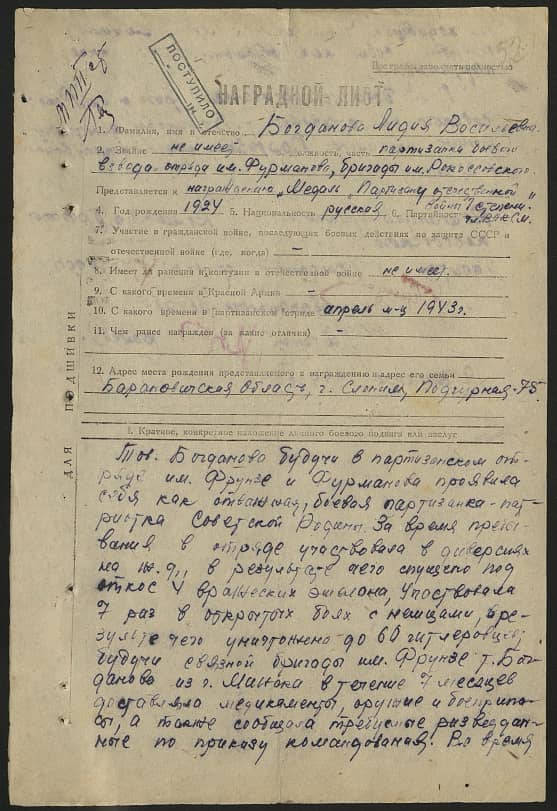 ПОСТУПИЛО
НАГРАДНОЙ ЛИСТ
1. Фамилия, имя и отчество Богданова Лидия Васильевна
2. Звание не имеет должность, часть партизанка боевого
взвода отряда им. Фурманова, бригады им. Рокоссовского
Представляется к награждению „Медаль Партизану отечественной
войны I степени"
4. Год рождения 1924 5. Национальность русская 6. Партийность чл. ВЛКСМ
7. Участие в гражданской войне, последующих боевых действиях по защите СССР и
отечественной войне (где, когда) —
8. Имеет ли ранения и контузии в отечественной войне не имеет
9. С какого времени в Красной Армии —
10. С какого времени в партизанском отряде апрель м-ц 1943 г.
11. Чем ранее награжден (за какие отличия) —
12. Адрес места рождения представляемого к награждению и адрес его семьи
Барановичская область, г. Слоним, -75.
ДЛЯ ПОДШИВКИ
I. Краткое, конкретное изложение личного боевого подвига или заслуг
Тов. Богданова будучи в партизанском от-
ряде им. Фрунзе и Фурманова проявила
себя как отважная, боевая партизанка-пат-
риотка Советской Родины. За время пребы-
вания в отряде участвовала в диверсиях
на ж.д., в результате чего спущено под
откос 4 вражеских эшелона, участвовала
7 раз в открытых боях с немцами, в ре-
зультате чего уничтожено до 60 гитлеровцев
будучи связной бригады им. Фрунзе т. Бог-
данова из г. Минска в течение 7 месяцев
доставляла медикаменты, оружие и боеприпа-
сы, а также сообщала требуемые разведдан-
ные по приказу командования. Во время